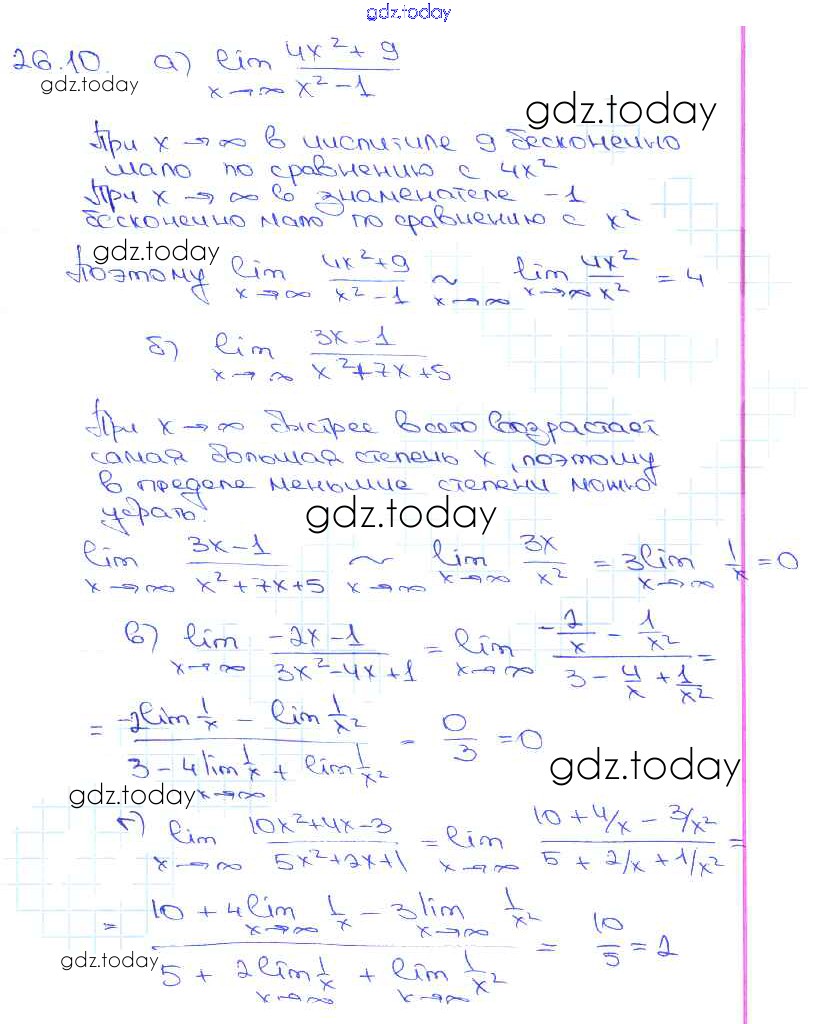 gdz.today
26.10. а) lim 4x²+9 / x²-1
x→∞
gdz.today
gdz.today
При x→∞ в числителе 9 бесконечно
мало по сравнению с 4x²
При x→∞ в знаменателе -1
бесконечно мало по сравнению с x²
gdz.today
Поэтому lim x→∞ 4x²+9 / x²-1 ~ x→∞ lim x→∞ 4x²/x² = 4
б) lim x→∞ 3x-1 / x²+7x+5
При x→∞ быстрее всего возрастает
самая большая степень x, поэтому
в пределе меньшие степени можно
убрать.
gdz.today
lim x→∞ 3x-1 / x²+7x+5 ~ x→∞ lim x→∞ 3x/x² = 3lim x→∞ 1/x = 0
в) lim x→∞ -2x-1 / 3x²-4x+1 = lim x→∞ -2/x - 1/x² / 3 - 4/x + 1/x² =
= -2lim 1/x - lim 1/x² / 3 - 4lim x→∞ 1/x + lim 1/x² = 0/3 = 0
gdz.today
gdz.today
г) lim x→∞ 10x²+4x-3 / 5x²+2x+1 = lim x→∞ 10+4/x-3/x² / 5+2/x+1/x² =
= 10+4lim x→∞ 1/x - 3lim x→∞ 1/x² / 5+2lim x→∞ 1/x + lim x→∞ 1/x² = 10/5 = 2
gdz.today